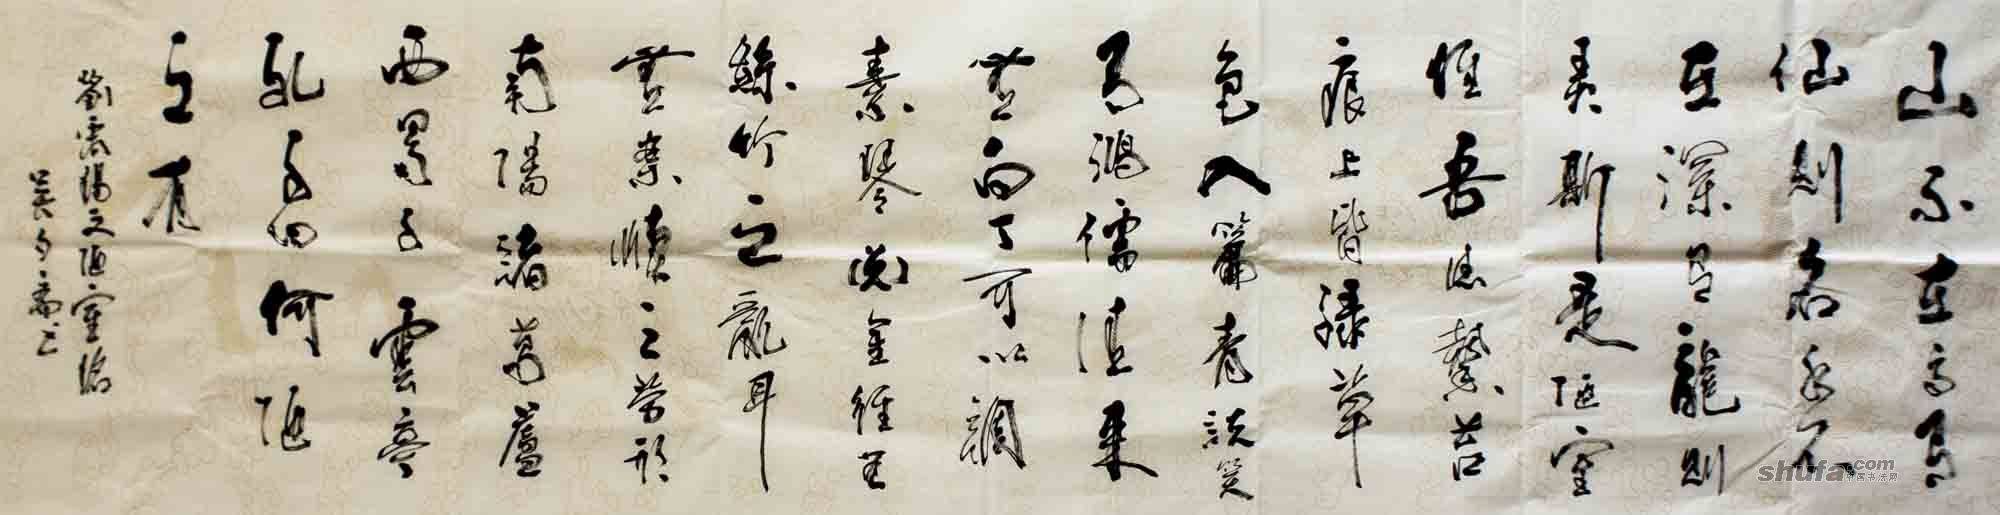 山不在高有
仙则名水不
在深有龍则
灵斯是陋室
惟吾德馨苔
痕上皆緑草
色入簾青談笑
有鴻儒往来
無白丁可以調
素琴閲金經無
絲竹之亂耳
無案牘之勞形
南陽諸葛蘆
西蜀子雲亭
孔子曰何陋
之有
劉禹锡之陋室铭
吴夕斋书
shufa.com
中国书法网